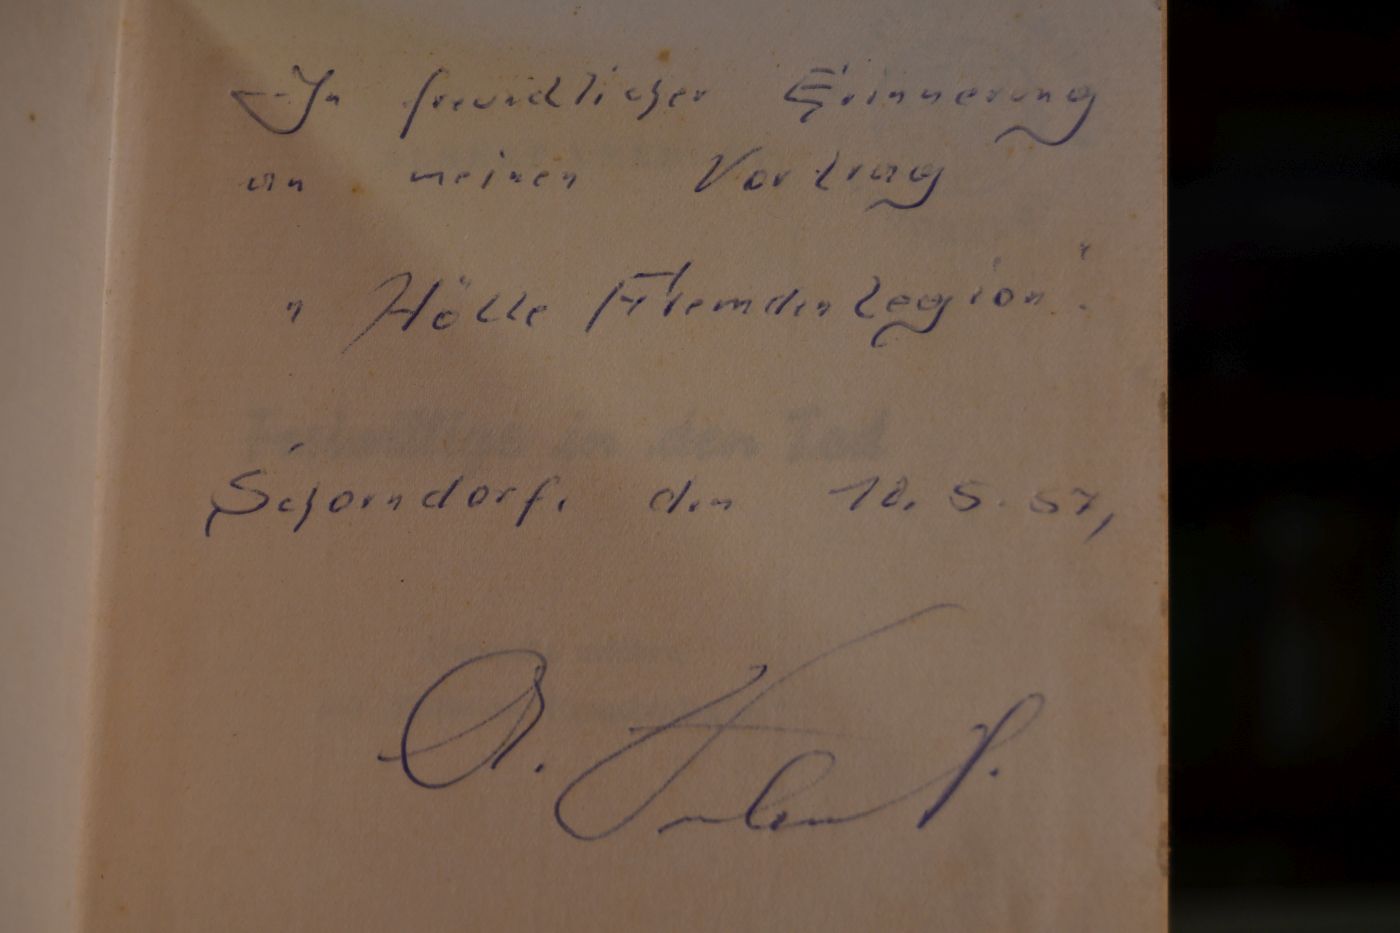 In freundlicher Erinnerung
an meinen Vortrag
"Hölle Fremdenlegion".
in den Tod
Schorndorf, den 18. 5. 57,